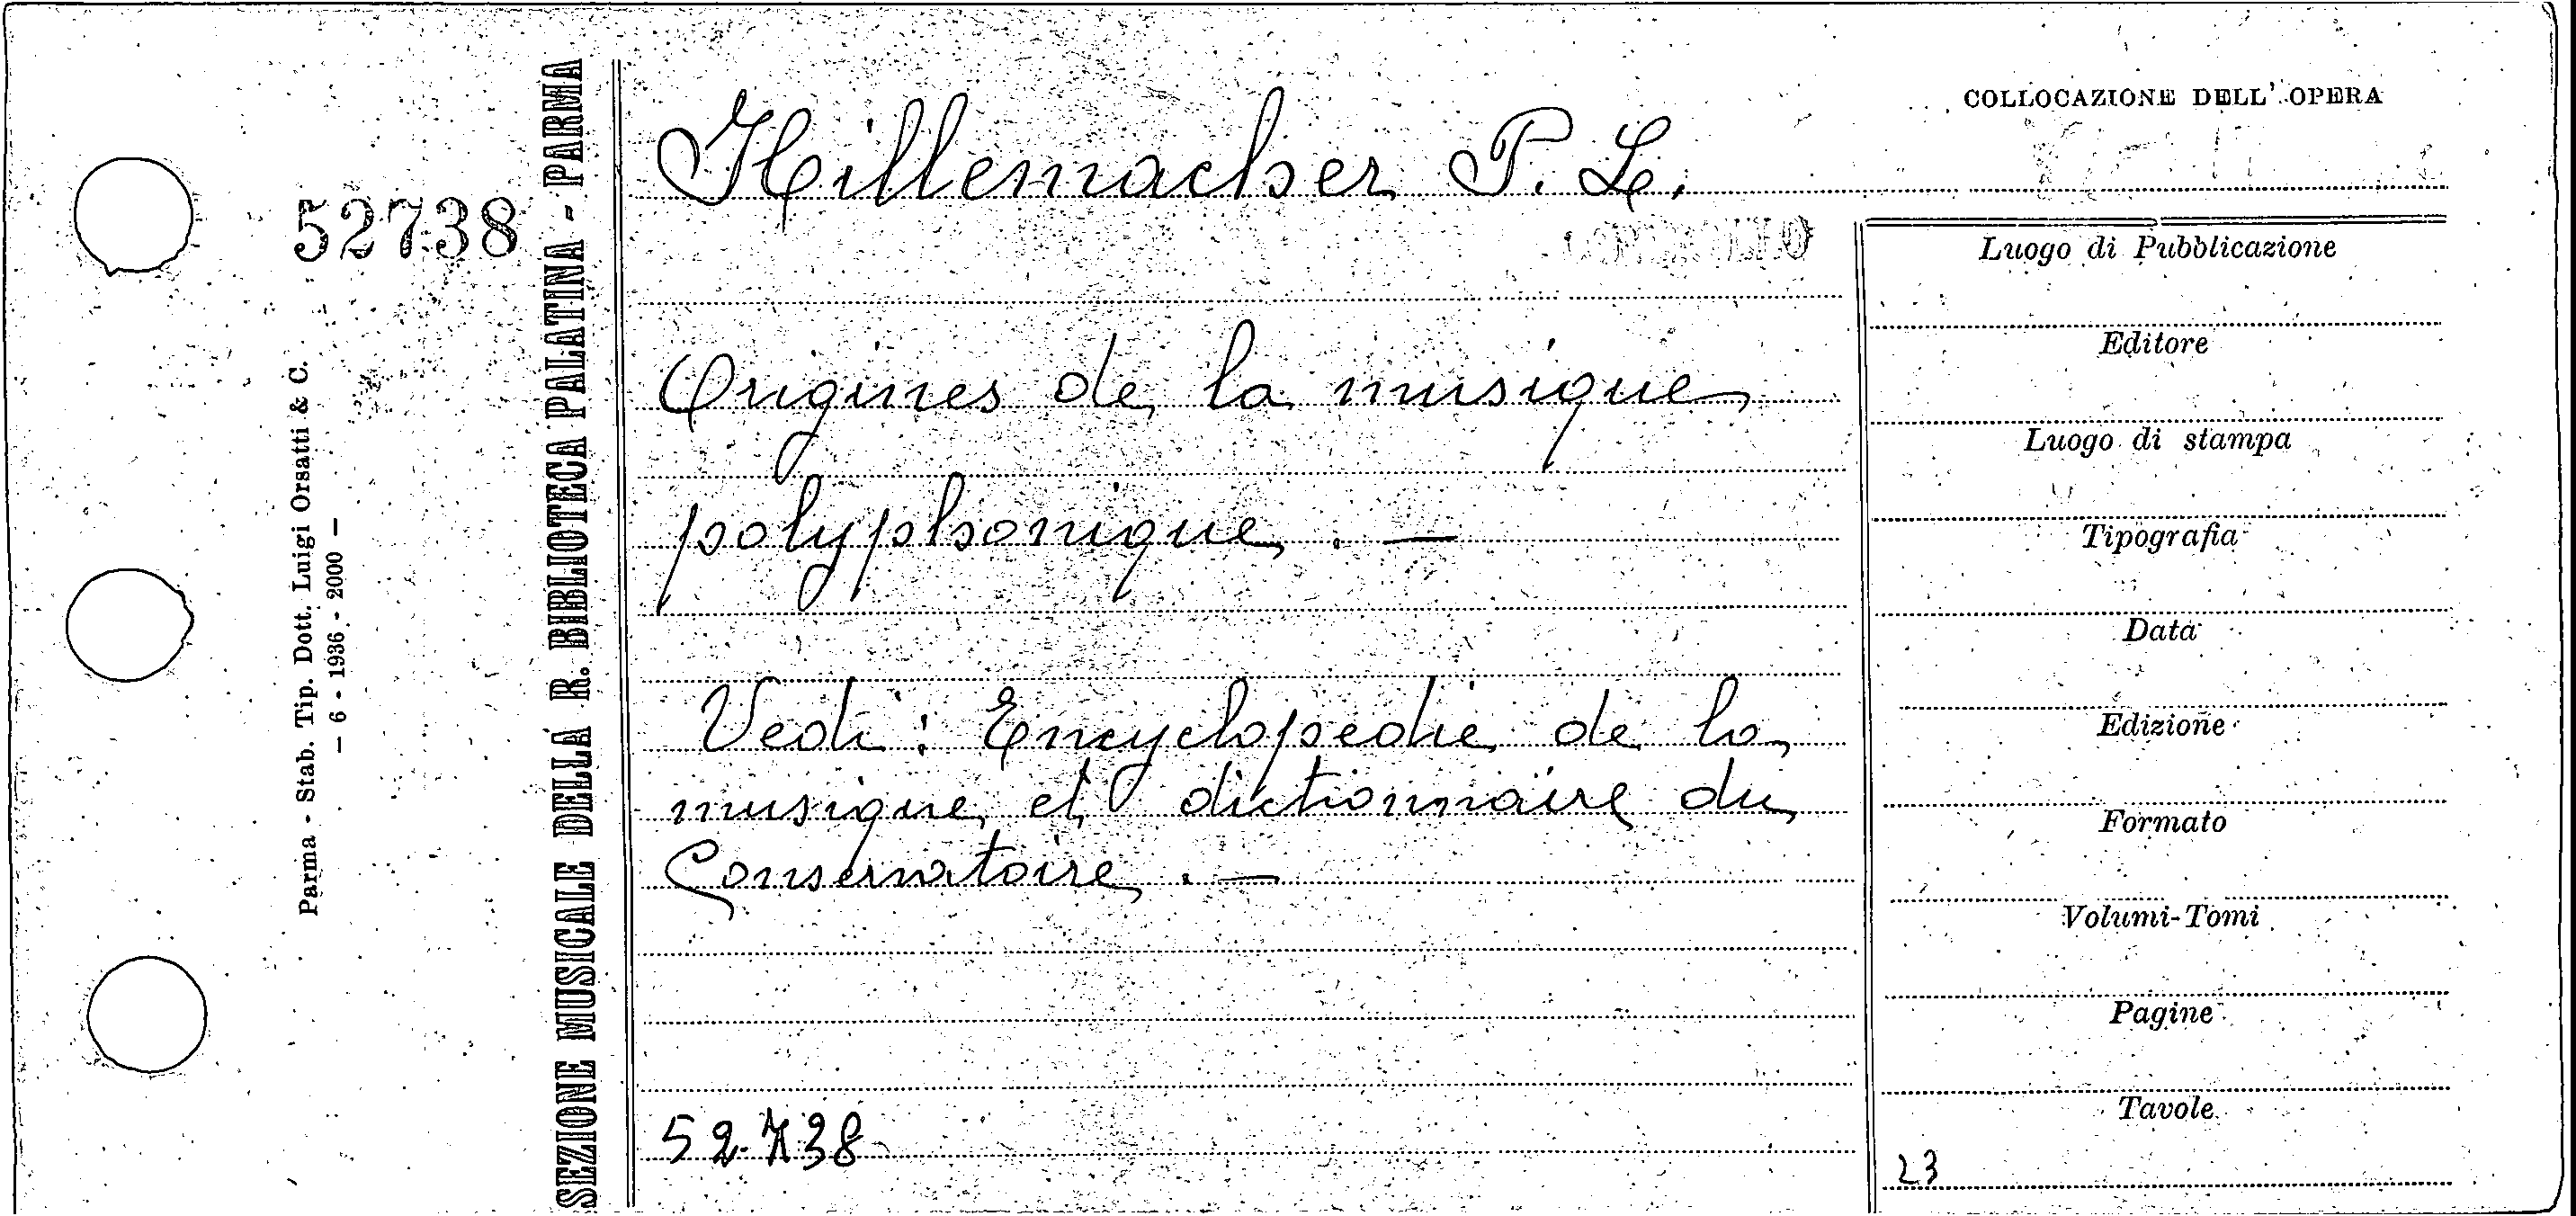 COLLOCAZIONE DELL' OPERA
Hillemacher P. L.
52738
Origines de la musique
polyphonique. —
Vedi: Encyclopedie de la
musique et dictionnaire du
Conservatoire. —
52738
Luogo di Pubblicazione
Editore
Luogo di stampa
Tipografia
Data
Edizione
Formato
Volumi-Tomi
Pagine
Tavole
23
SEZIONE MUSICALE DELLA R. BIBLIOTECA PALATINA - PARMA
Parma - Stab. Tip. Dott. Luigi Orsatti & C.
— 6 - 1936 - 2000 —